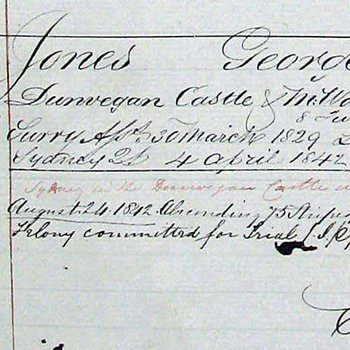 Jones George
Dunvegan Castle & M. Wo
8 Ju
Surry Ass 30 March 1829
Sydney QS 4 April 1842
Sydney in the Dunvegan Castle
August 24. 1842. Absconding 75 Stripes
Felony committed for Trial